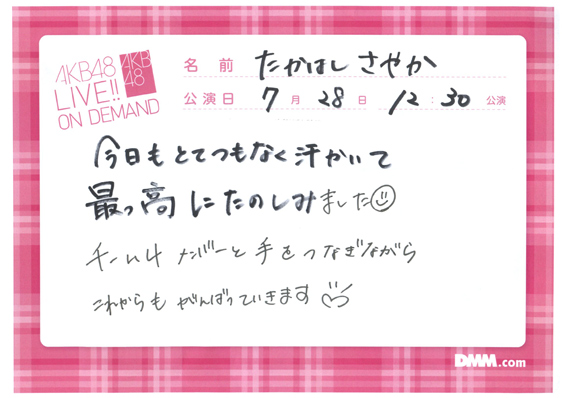 AKB48
LIVE!!
ON DEMAND
AKB
48
名前 たかはし さやか
公演日 7月 28日 12:30 公演
今日もとてつもなく汗かいて
最っ高にたのしみました
チーム4 メンバーと手をつなぎながら
これからも がんばっていきます
DMM.com